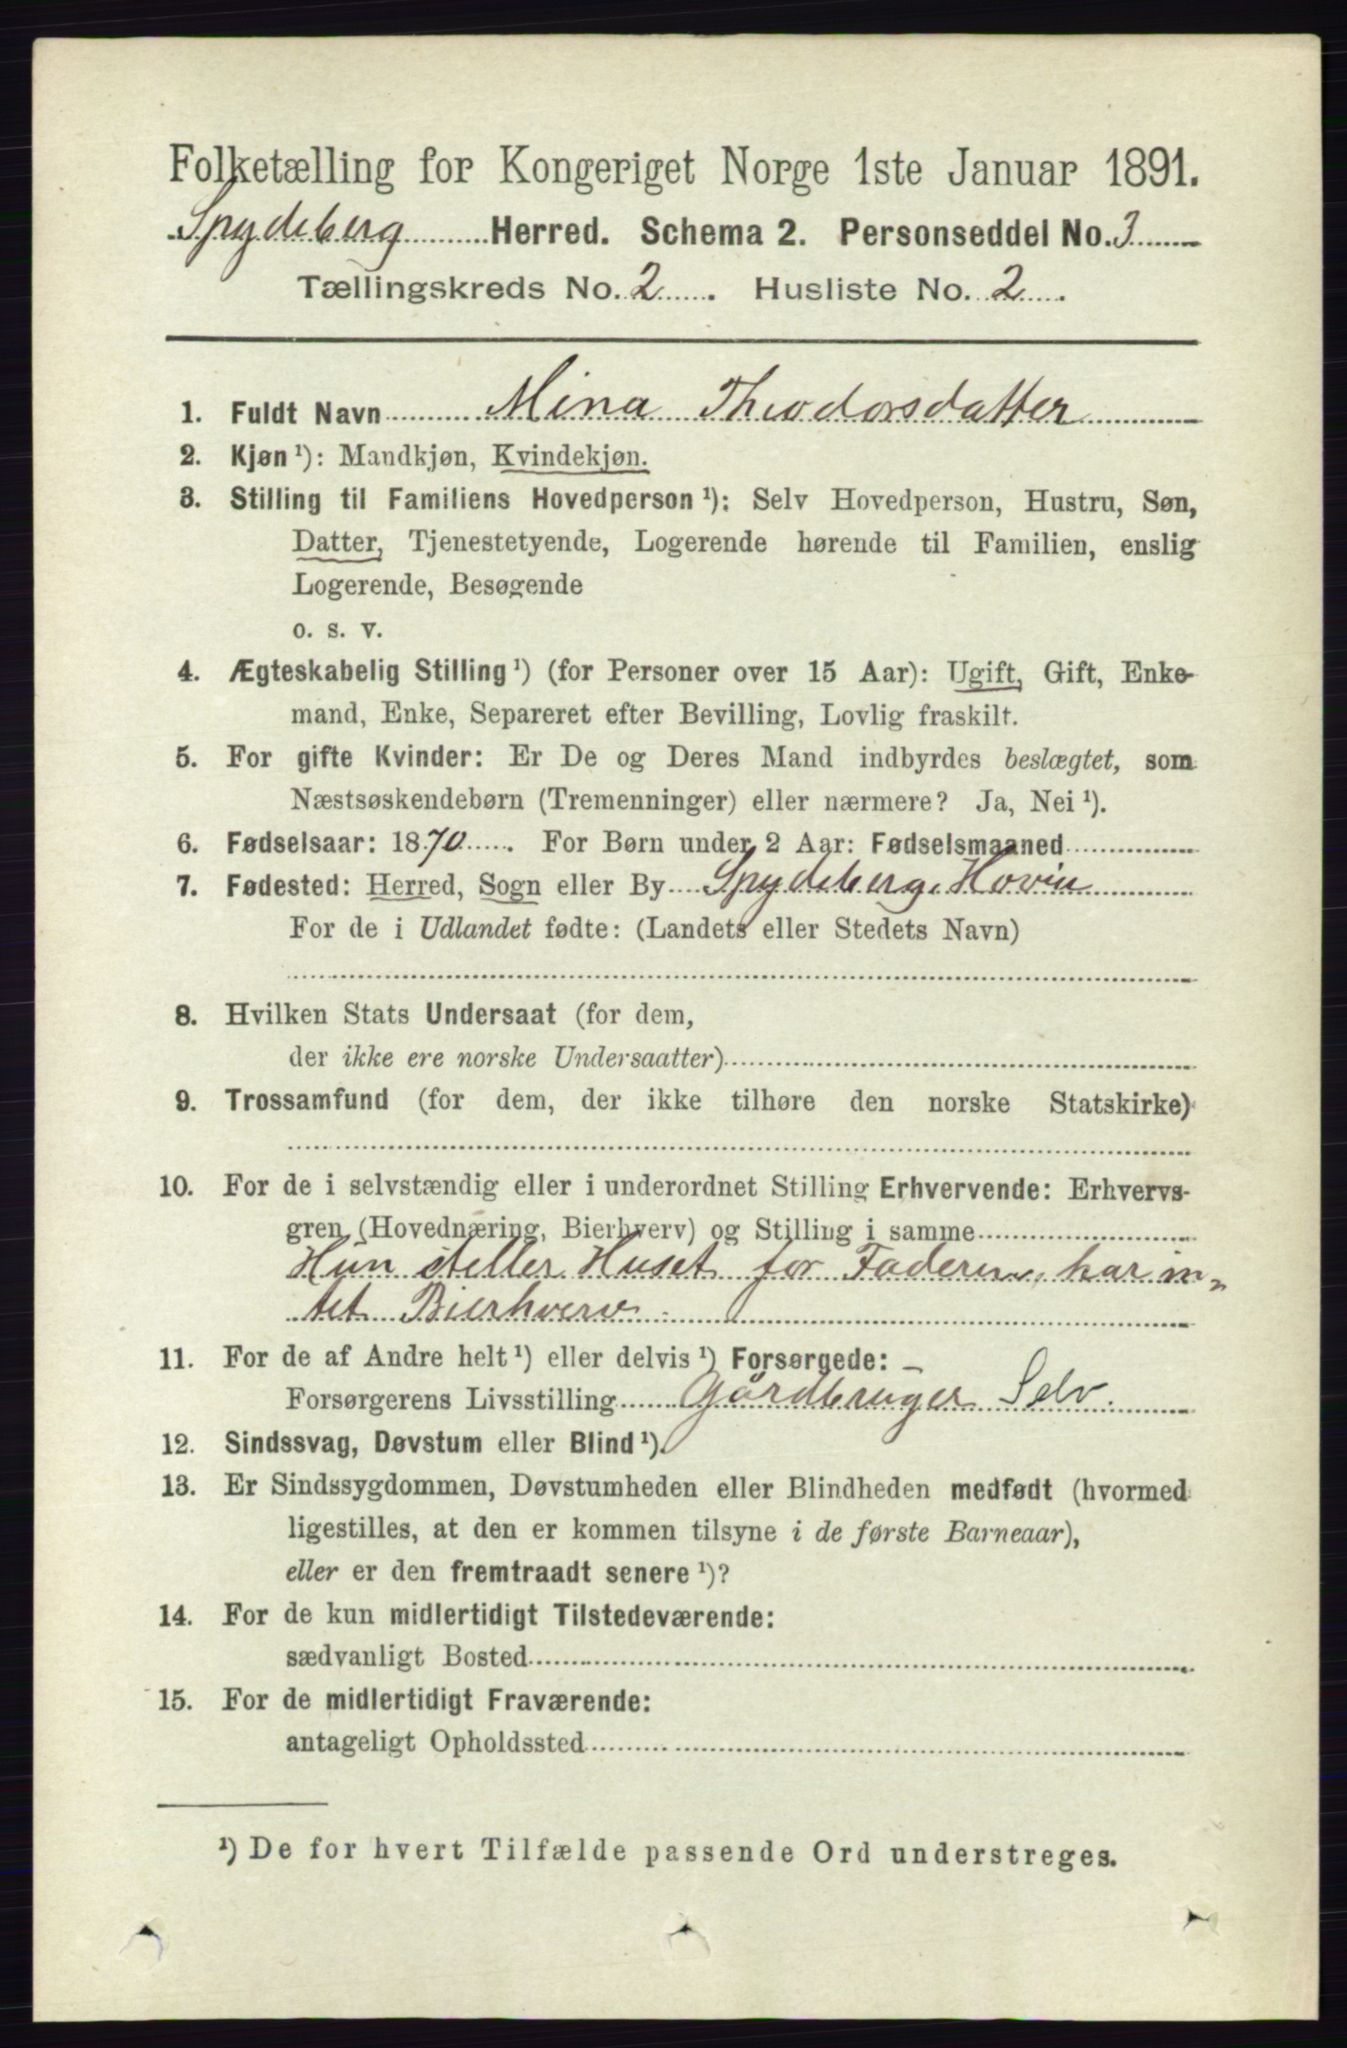 Folketælling for Kongeriget Norge 1ste Januar 1891.
Spydeberg Herred. Schema 2. Personseddel No. 3
Tællingskreds No. 2. Husliste No. 2.
1. Fuldt Navn Mina Theodorsdatter
2. Kjøn ¹): Mandkjøn, Kvindekjøn.
3. Stilling til Familiens Hovedperson ¹): Selv Hovedperson, Hustru, Søn,
Datter, Tjenestetyende, Logerende hørende til Familien, enslig
Logerende, Besøgende
o. s. v.
4. Ægteskabelig Stilling ¹) (for Personer over 15 Aar): Ugift, Gift, Enke-
mand, Enke, Separeret efter Bevilling, Lovlig fraskilt.
5. For gifte Kvinder: Er De og Deres Mand indbyrdes beslægtet, som
Næstsøskendebørn (Tremenninger) eller nærmere? Ja, Nei ¹).
6. Fødselsaar: 1870. For Børn under 2 Aar: Fødselsmaaned
7. Fødested: Herred, Sogn eller By Spydeberg, Hovin
For de i Udlandet fødte: (Landets eller Stedets Navn)
8. Hvilken Stats Undersaat (for dem,
der ikke ere norske Undersaatter)
9. Trossamfund (for dem, der ikke tilhøre den norske Statskirke)
10. For de i selvstændig eller i underordnet Stilling Erhvervende: Erhvervs-
gren (Hovednæring, Bierhverv) og Stilling i samme
Hun steller Huset for Faderen, har in=
tet Bierhverv.
11. For de af Andre helt ¹) eller delvis ¹) Forsørgede: –
Forsørgerens Livsstilling Gårdbruger Selv.
12. Sindssvag, Døvstum eller Blind ¹).
13. Er Sindssygdommen, Døvstumheden eller Blindheden medfødt (hvormed
ligestilles, at den er kommen tilsyne i de første Barneaar),
eller er den fremtraadt senere ¹)?
14. For de kun midlertidigt Tilstedeværende:
sædvanligt Bosted
15. For de midlertidigt Fraværende:
antageligt Opholdssted
¹) De for hvert Tilfælde passende Ord understreges.